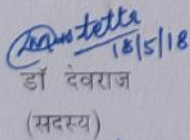 18/5/18
डॉ देवराज
(सदस्य)